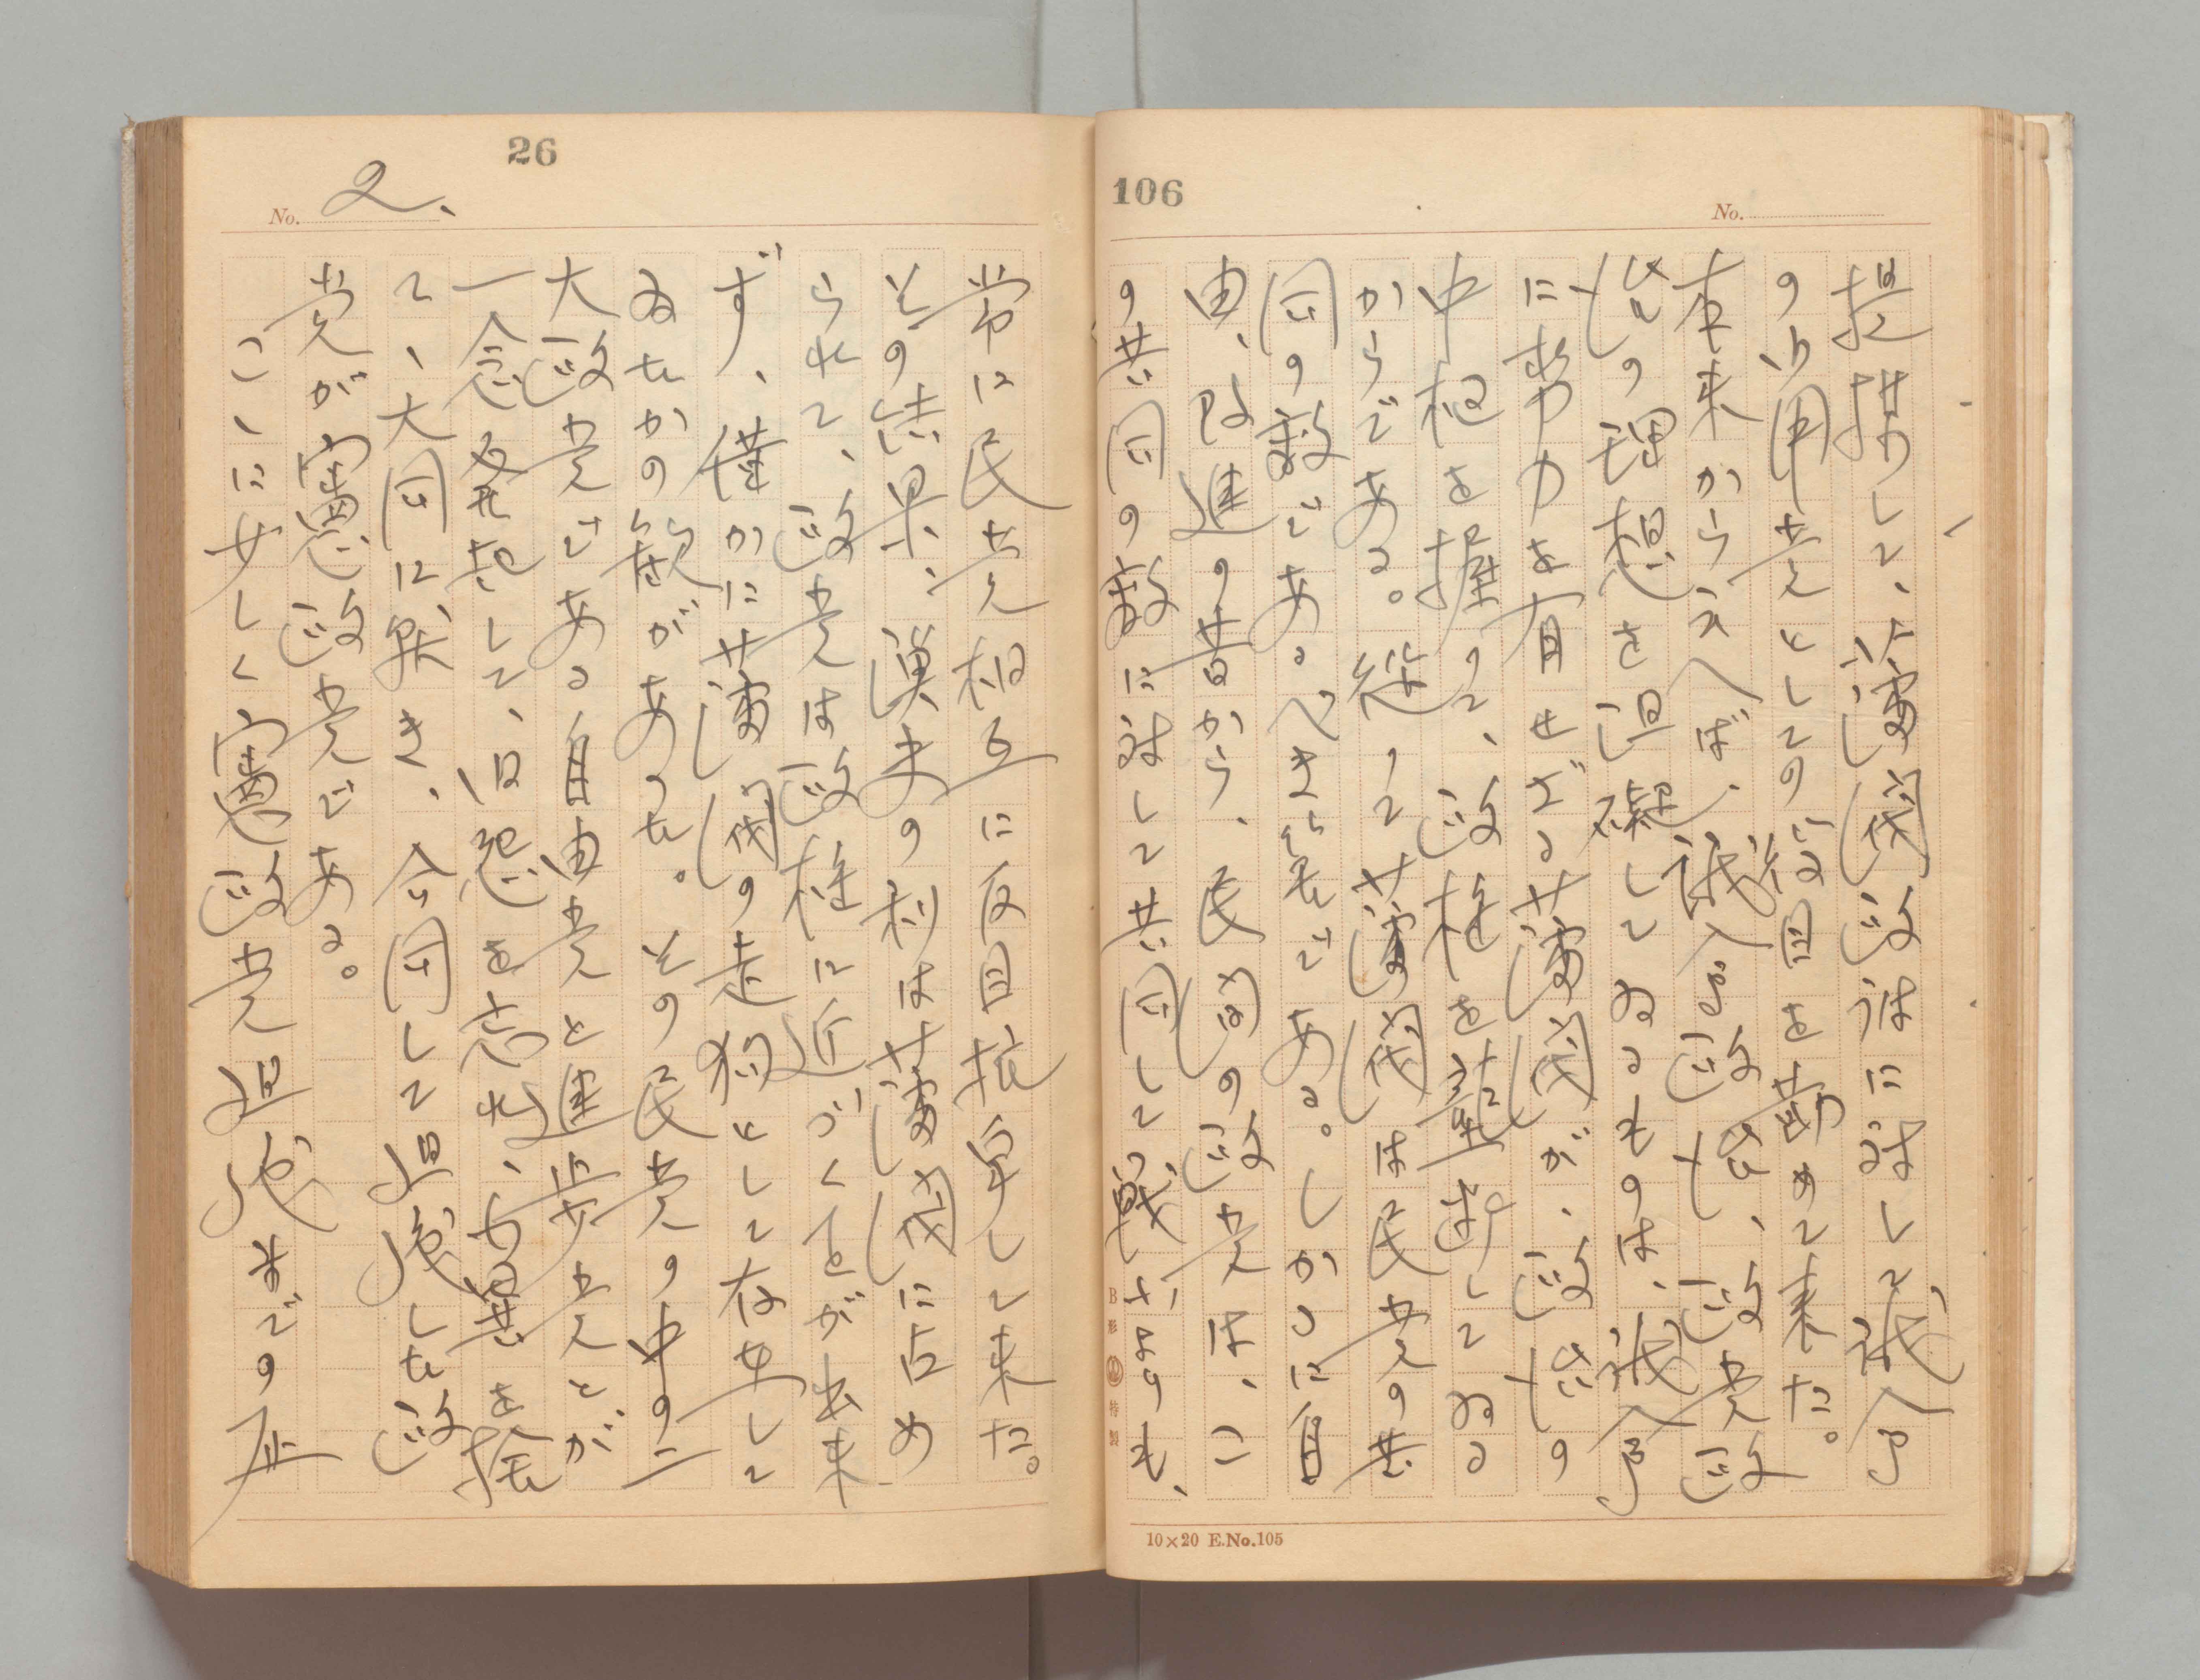 106
No.
提携して、藩閥政治に対して議会
の御用党としての役目を勤めて来た。
本来から云へば、議会政治、政党政
治の理想を阻礙してゐるものは、議会
に勢力を有せざる藩閥が、政治の
中枢を握つて、政権を壟断してゐる
からである。従つて藩閥は民党の共
同の敵であるべき筈である。しかるに自
由、改進の昔から、民間の政党は、こ
の共同の敵に対して共同して戦はも、
B形 特製
10×20 E.No.105
26
No. 2.
常に民党相互に反目抗争して来た。
その結果、漁夫の利は藩閥に占め
られて、政党は政権に近づくことが出来
ず、僅かに藩閥の走狗として存在して
ゐたかの観があつた。その民党の中の二
大政党である自由党と進歩党とが
一念発起して、旧怨を忘れ、小異を捨
て、大同に就き、合同して組織した政
党が憲政党である。
こゝに少しく憲政党組織までの歴